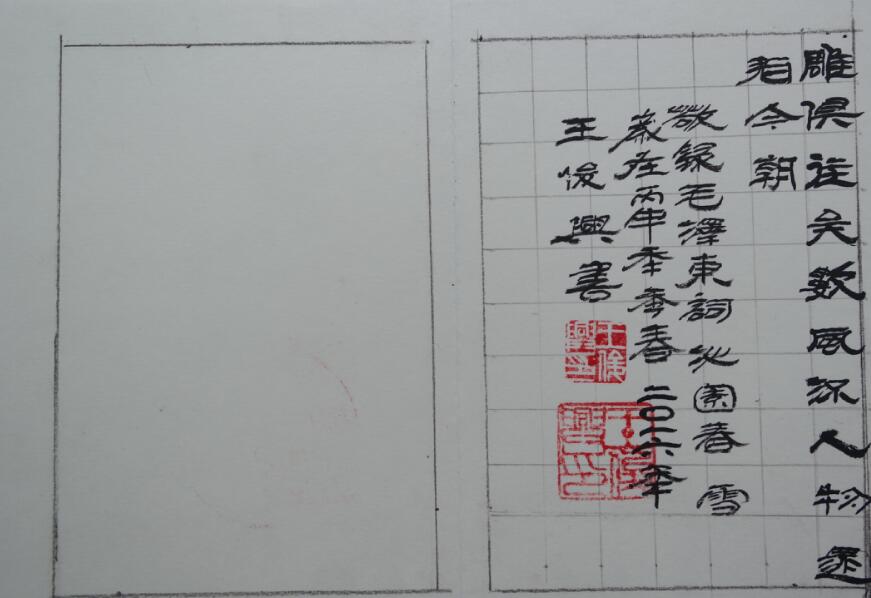 雕俱往矣數風流人物還
看今朝
敬錄毛澤東詞沁園春 雪
歲在丙申年季春 二〇一六年
王俊興書
王俊興印
王俊興印